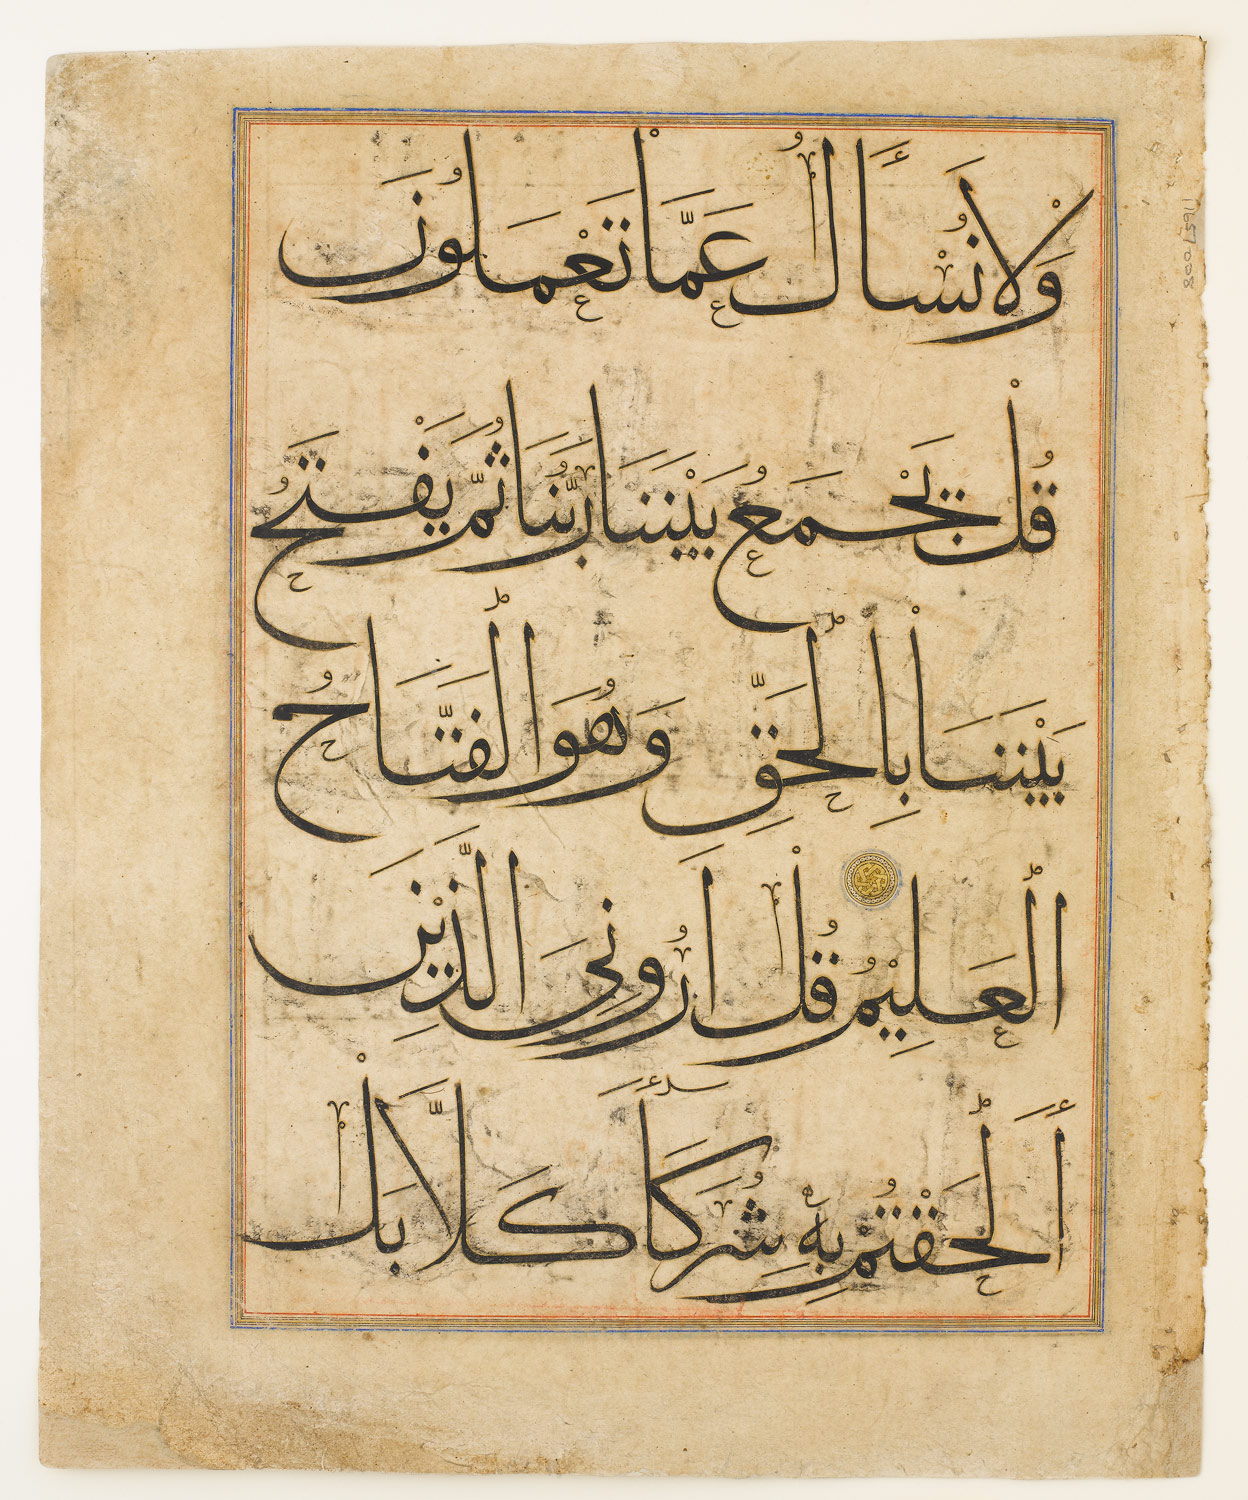 وَلَا نُسْأَلُ عَمَّا تَعْمَلُونَ
قُلْ يَجْمَعُ بَيْنَنَا رَبُّنَا ثُمَّ يَفْتَحُ
بَيْنَنَا بِالْحَقِّ وَهُوَ الْفَتَّاحُ
الْعَلِيْمُ قُلْ أَرُونِيَ الَّذِيْنَ
أَلْحَقْتُمْ بِهِ شُرَكَاءَ كَلَّا بَلْ